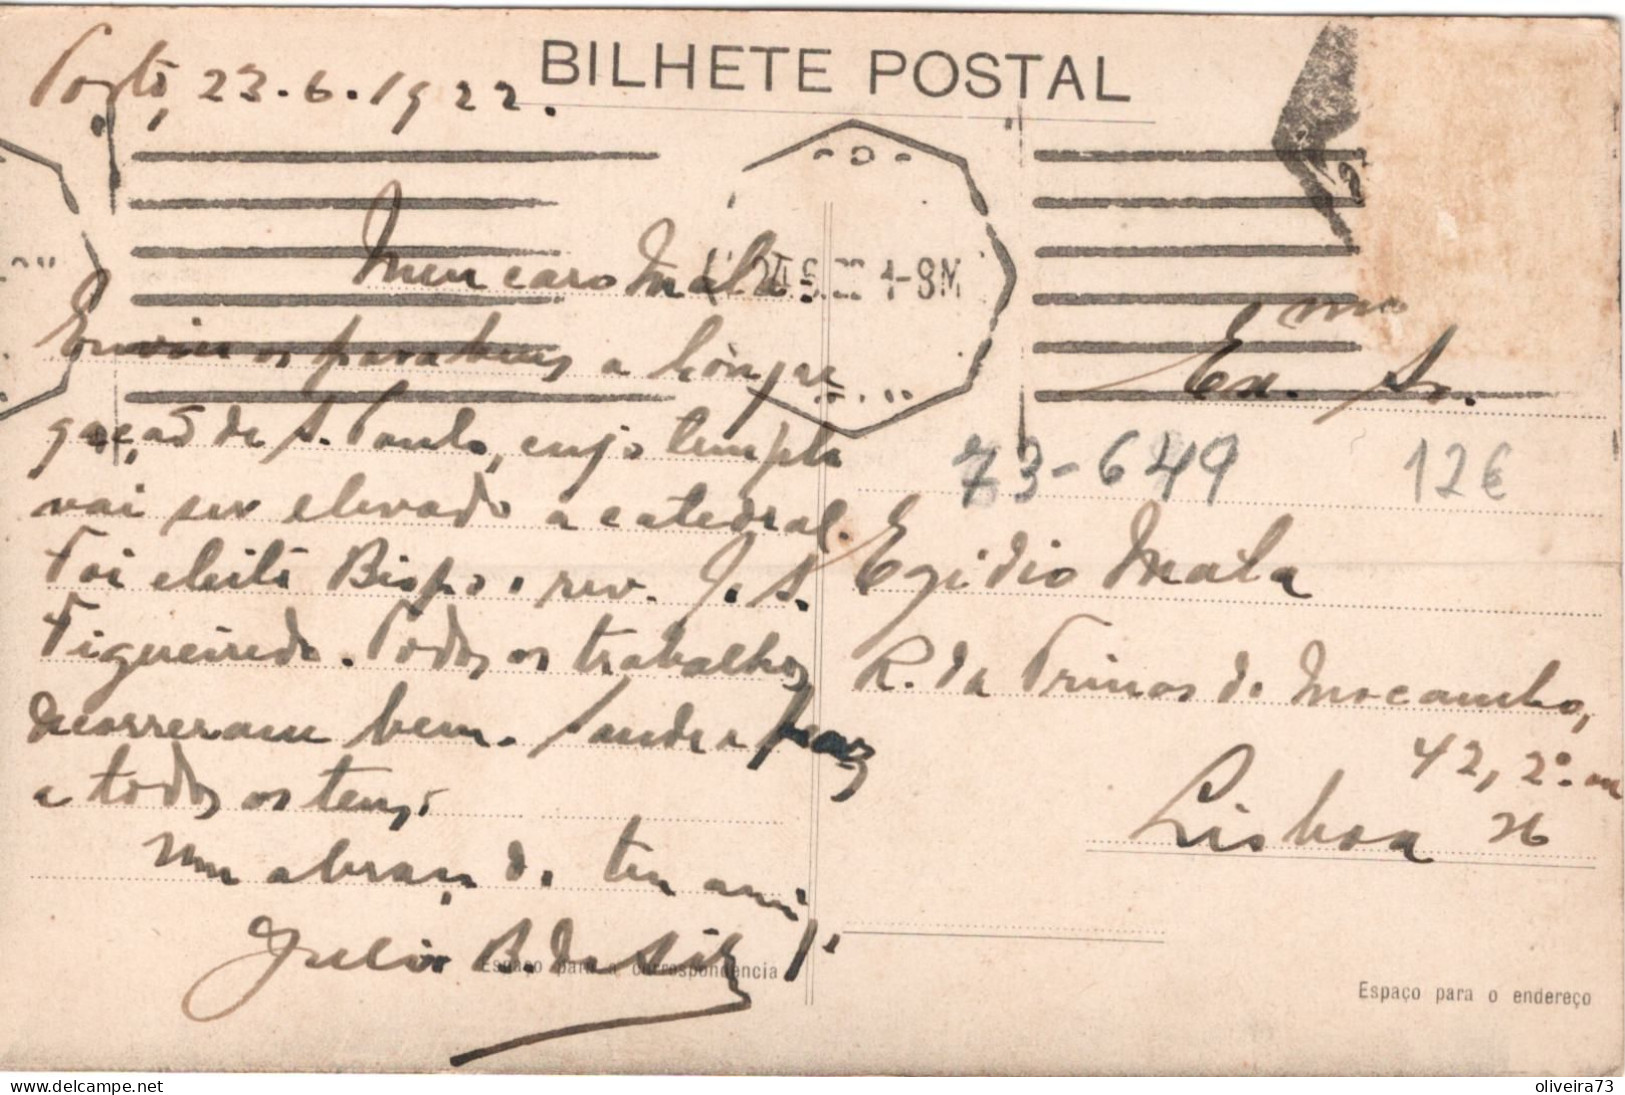 BILHETE POSTAL
Porto, 23.6.1922.
Meu caro Mala:
24.6.22 4-8M
Envio os parabens a Congre
gação de S. Paulo, cujo templo
vai ser elevado a catedral.
Foi eleito Bispo o rev. J. S.
Figueiredo. Todos os trabalhos
decorreram bem. Saude e paz
a todos os teus.
Um abraço do teu amigo
Julio B. da Silva
Espaço para a correspondencia
Ex.mo Sr.
73-649 12€
Egidio Mala
R. da Trinas do Mocambo,
42, 2º.
Lisboa
Espaço para o endereço
oliveira73